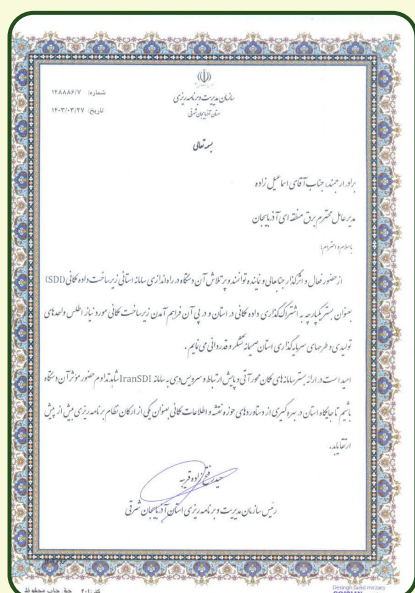 سازمان مدیریت و برنامه‌ریزی
استان آذربایجان شرقی
شماره: ۱۴۸۸۸۶/۷
تاریخ: ۱۴۰۳/۰۳/۲۷
بسمه تعالی
برادر ارجمند، جناب آقای اسماعیل زاده
مدیر عامل محترم برق منطقه ای آذربایجان
با سلام و احترام؛
از حضور فعال و اثرگذار جنابعالی و نماینده توانمند و پر تلاش آن دستگاه در راه‌اندازی سامانه استانی زیرساخت داده مکانی (SDI)
بعنوان بستر یکپارچه به اشتراک گذاری داده مکانی در استان و در پی آن فراهم آمدن زیرساخت مکانی مورد نیاز اطلس واحدهای
تولیدی و طرحهای سرمایه گذاری استان صمیمانه تشکر و قدردانی می نمایم.
امید است در ارائه بستر سامانه های مکان محور آتی و پایش ارتباط و سرویس دهی به سامانه IranSDI شاهد تداوم حضور موثر آن دستگاه
باشیم تا جایگاه استان در بهره گیری از دستاوردهای حوزه نقشه و اطلاعات مکانی بعنوان یکی از ارکان نظام برنامه ریزی بیش از پیش
ارتقا یابد.
رئیس سازمان مدیریت و برنامه ریزی استان آذربایجان شرقی
حق چاپ محفوظ